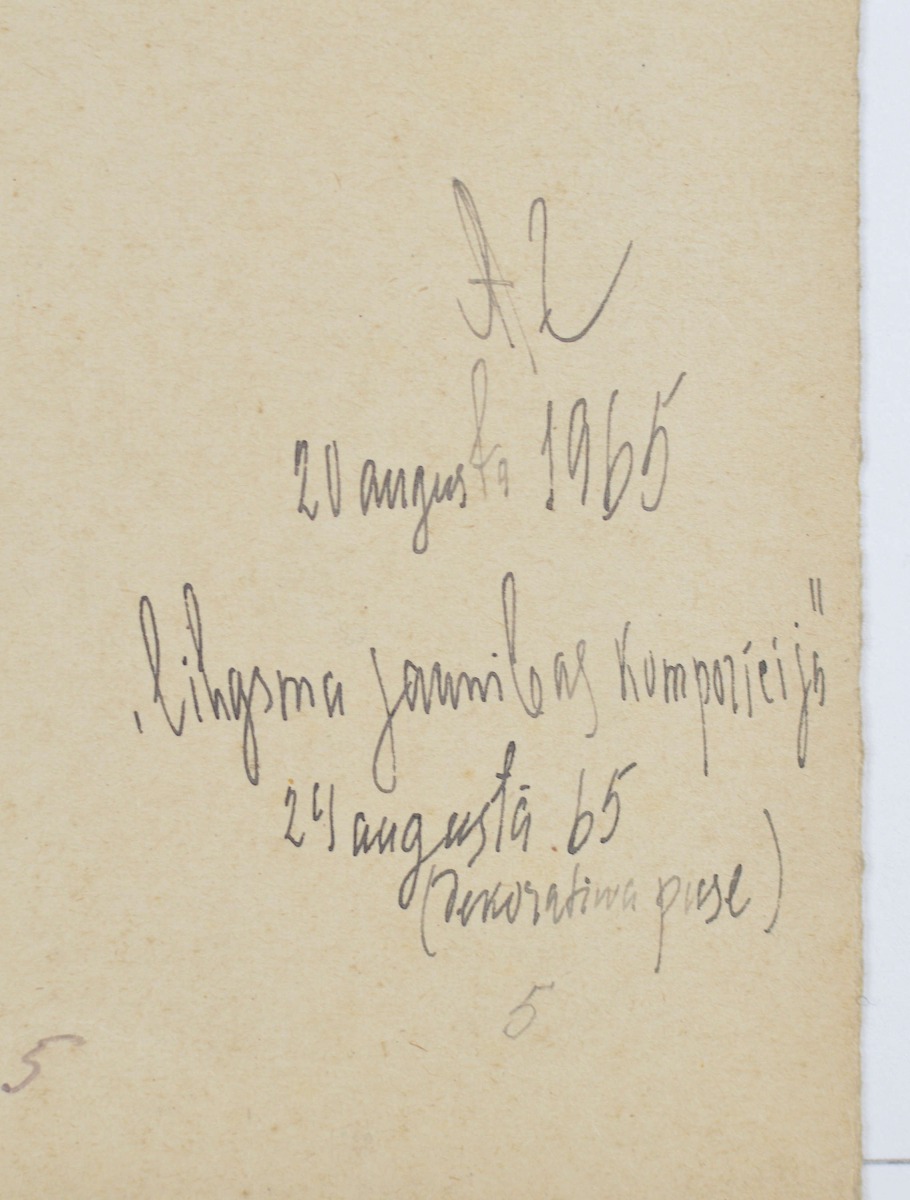 AZ
20 augusta 1965
„Lihgsma jaunibas kompozicija"
24 augustā 65
(Dekorativa puse)
5
5